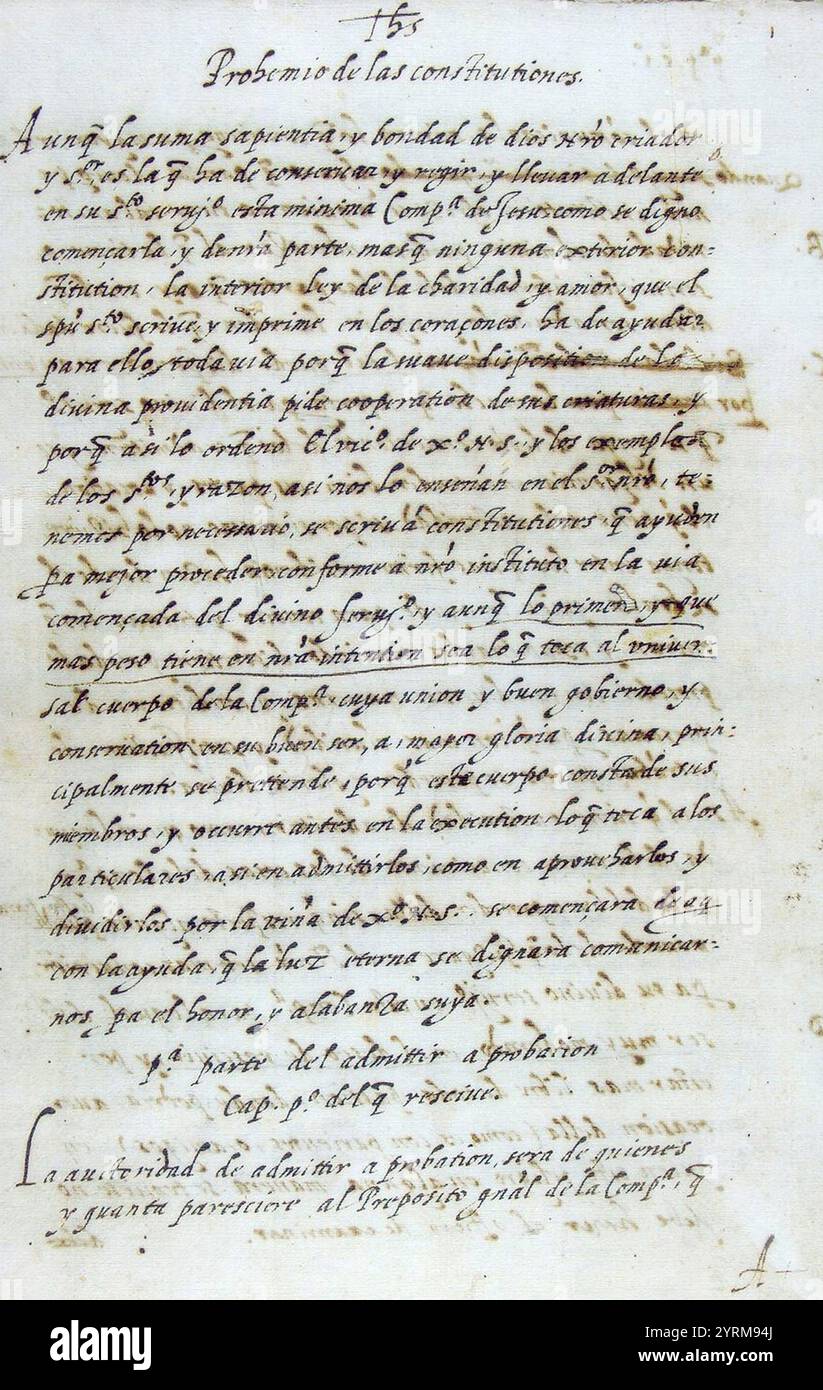 Jhs
1
Prohemio de las constitutiones.
Aunq̃ la suma sapientia, y bondad de dios Nr̃o criador
y s.ᵒʳ, es la q̃ ha de conseruar, y regir, y lleuar adelante
en su s.ᵗᵒ seruj.ᵒ esta minima Comp.ᵃ de Jesu como se digno
començarla, y de nr̃a parte, mas q̃ ninguna exterior con=
stitution, la interior ley de la charidad, y amor, que el
spũ s.ᵗᵒ scriue, y imprime en los coraçones, ha de ayudar
para ello, todauia porq̃ la suaue disposition de la
diuina prouidentia pide cooperation de sus criaturas, y
porq̃ asi lo ordeno El vic.ᵒ de xᵒ. N. S., y los exemplos
de los s.ᵗᵒˢ, y razon, asi nos lo enseñan en el s.ᵒʳ nrõ, te=
nemos por necessario, se scriuã constitutiones, q̃ ayuden
pa mejor proceder, conforme a nrõ instituto en la uia
començada del diuino seruj.ᵒ, y aunq̃ lo primero, y que
mas peso tiene en nrã intention sea lo q̃ toca al vniuer=
sal cuerpo de la Comp.ᵃ cuya union y buen gobierno, y
conseruation en su buen ser, a, mayor gloria diuina, prin=
cipalmente se prettende, porq̃ este cuerpo consta de sus
miembros, y occurre antes en la execution, lo q̃ toca a los
particulares, asi en admittirlos, como en aprouecharlos, y
diuidirlos por la viña de xᵒ. N. S., se començara de aq
con la ayuda, q̃ la luz eterna se dignara comunicar=
nos, pa el honor, y alabanza suya.
p.ᵃ parte del admittir a probacion
Cap. p.ᵒ del q̃ resciue.
La auctoridad de admittir a probation, sera de quienes
y quanta paresciere al Preposito gnãl de la Comp.ᵃ, q̃
A
alamy
Image ID: 2YRM94J
www.alamy.com